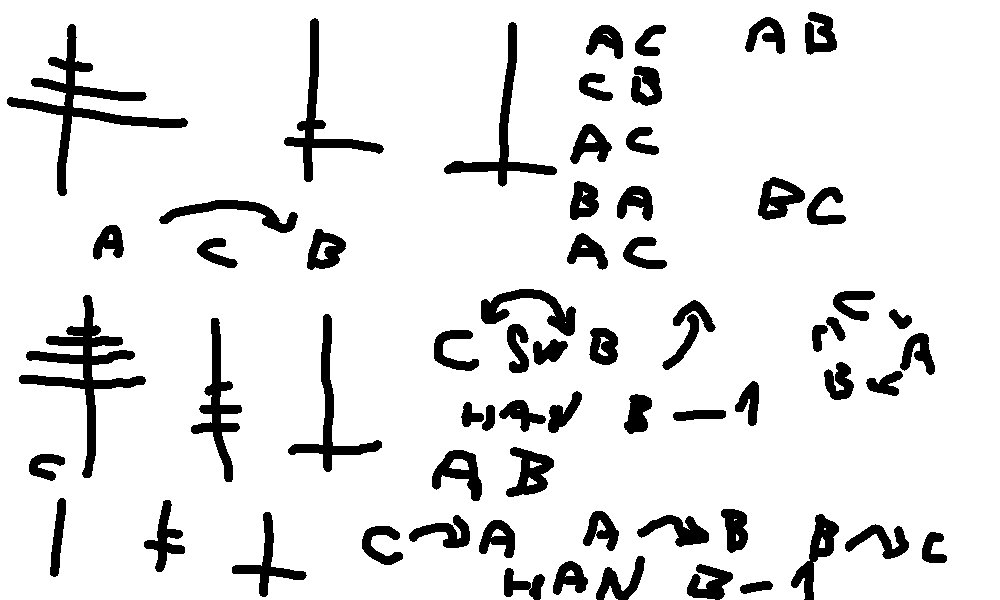 AC AB
CB
AC
BA BC
AC
A C B
C SW B
C A B
HAN B-1
C
AB
C A A B B C
HAN B-1